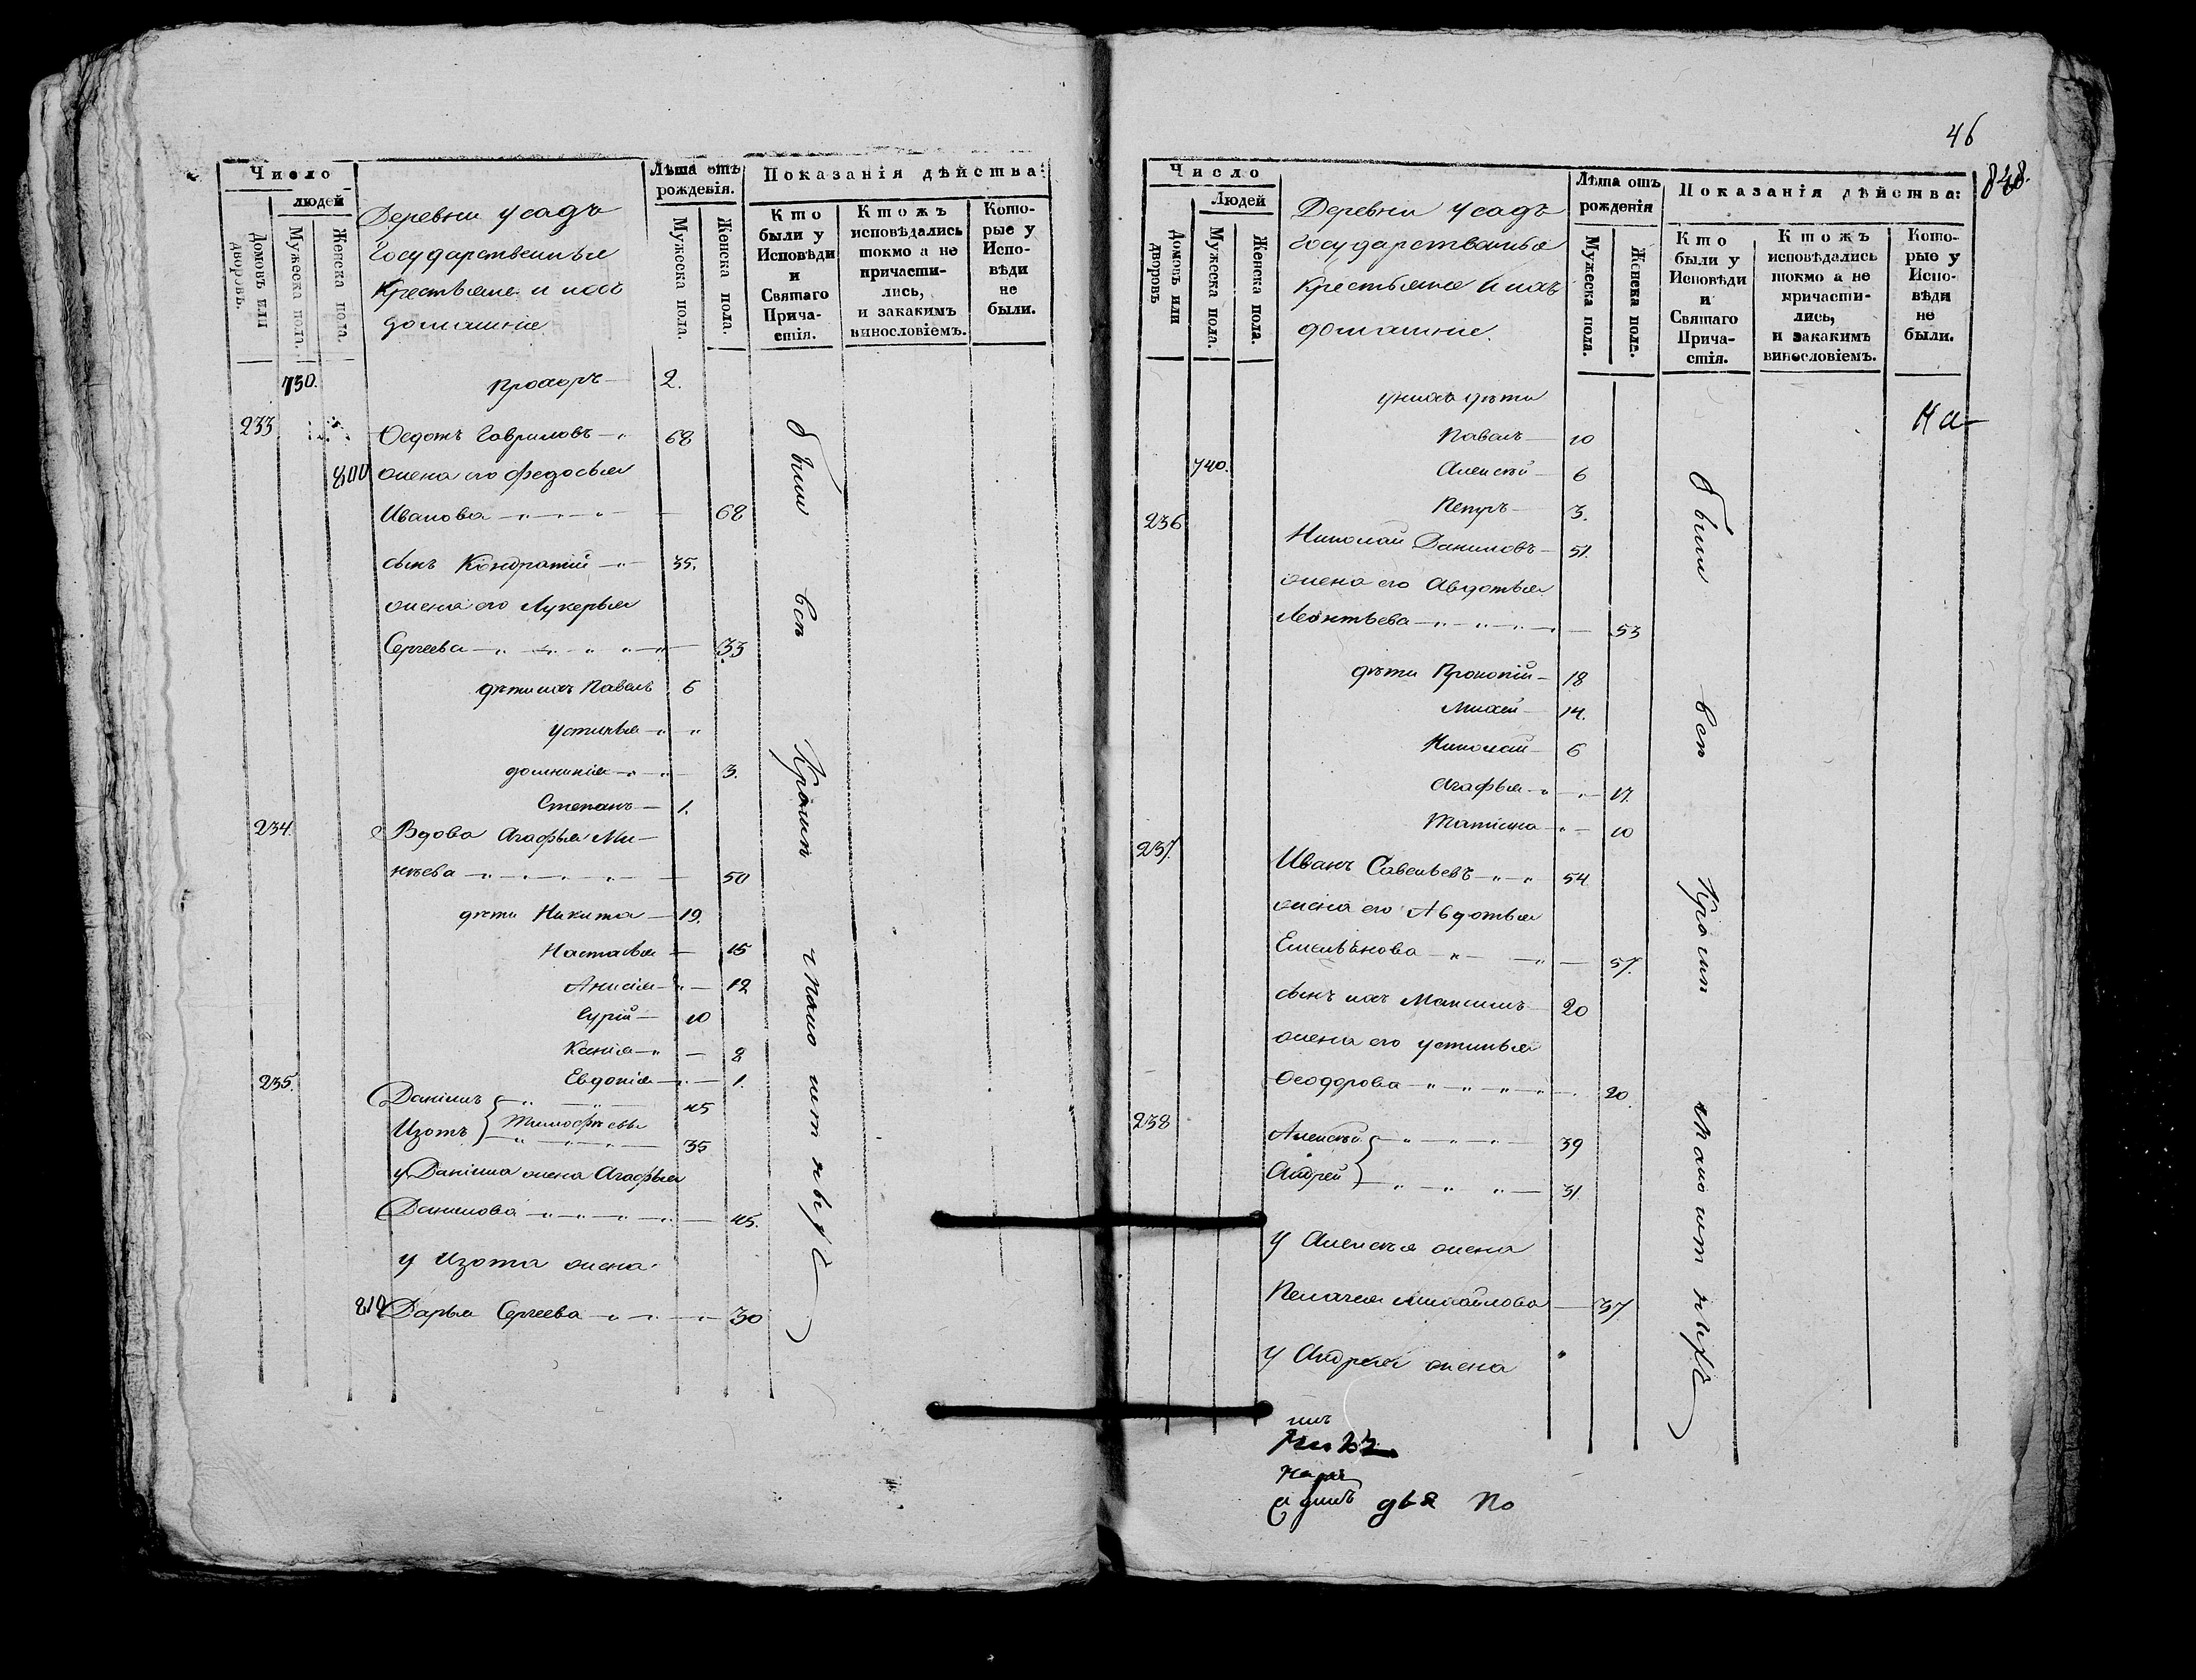 Число
людей
Домовъ или дворовъ.
Мужеска пола.
Женска пола.
Деревни Усадъ
Государственныя
Крестьяне и ихъ
домашніе
Лѣта отъ рожденія.
Мужеска пола.
Женска пола.
Показанія дѣйства:
Кто были у Исповѣди и Святаго Причастія.
Ктожъ исповѣдались токмо а не причастились, и закакимъ винословіемъ.
Которые у Исповѣди не были.
730. Прохоръ 2.
233 Ѳедотъ Гавриловъ 68
800 жена его Федосья
Иванова 68
сынъ Кондратій 35.
жена его Лукерья
Сергеева 33
дѣти ихъ Павелъ 6
Устинья
Домникія 3.
Степанъ 1.
234. Вдова Агафья Ми-
нѣева 50
дѣти Никита 19.
Настасья 15
Анисія 12
Гурій 10
Ксенія 8
Евдокія 1.
235. Даніилъ 45
Изотъ Тимофѣевы 35
у Даніила жена Агафья
Данилова 45.
у Изота жена
810 Дарья Сергеева 30
были всѣ Кромѣ
46
848.
Число
Людей
Домовъ или дворовъ
Мужеска пола.
Женска пола.
Деревни Усадъ
Государственныя
Крестьяне и ихъ
домашніе.
Лѣта отъ рожденія
Мужеска пола.
Женска пола.
Показанія дѣйства:
Кто были у Исповѣди и Святаго Причастія.
Ктожъ исповѣдались токмо а не причастились, и закакимъ винословіемъ.
Которые у Исповѣди не были.
На-
у нихъ дѣти
Павелъ 10
740. Алексѣй 6
Петръ 3.
236 Николай Даниловъ 51.
жена его Авдотья
Леонтьева 53
дѣти Прокопій 18
Михей 14.
Николай 6
Агафья 17.
Татіана 10
237. Иванъ Савельевъ 54
жена его Авдотья
Емельянова 57.
сынъ ихъ Максимъ 20
жена его Устинья
Ѳеодорова 20.
238 Алексѣй 39
Андрей 31.
У Алексѣя жена
Пелагея Михайлова 37
У Андрея жена
были всѣ Кромѣ
дья По